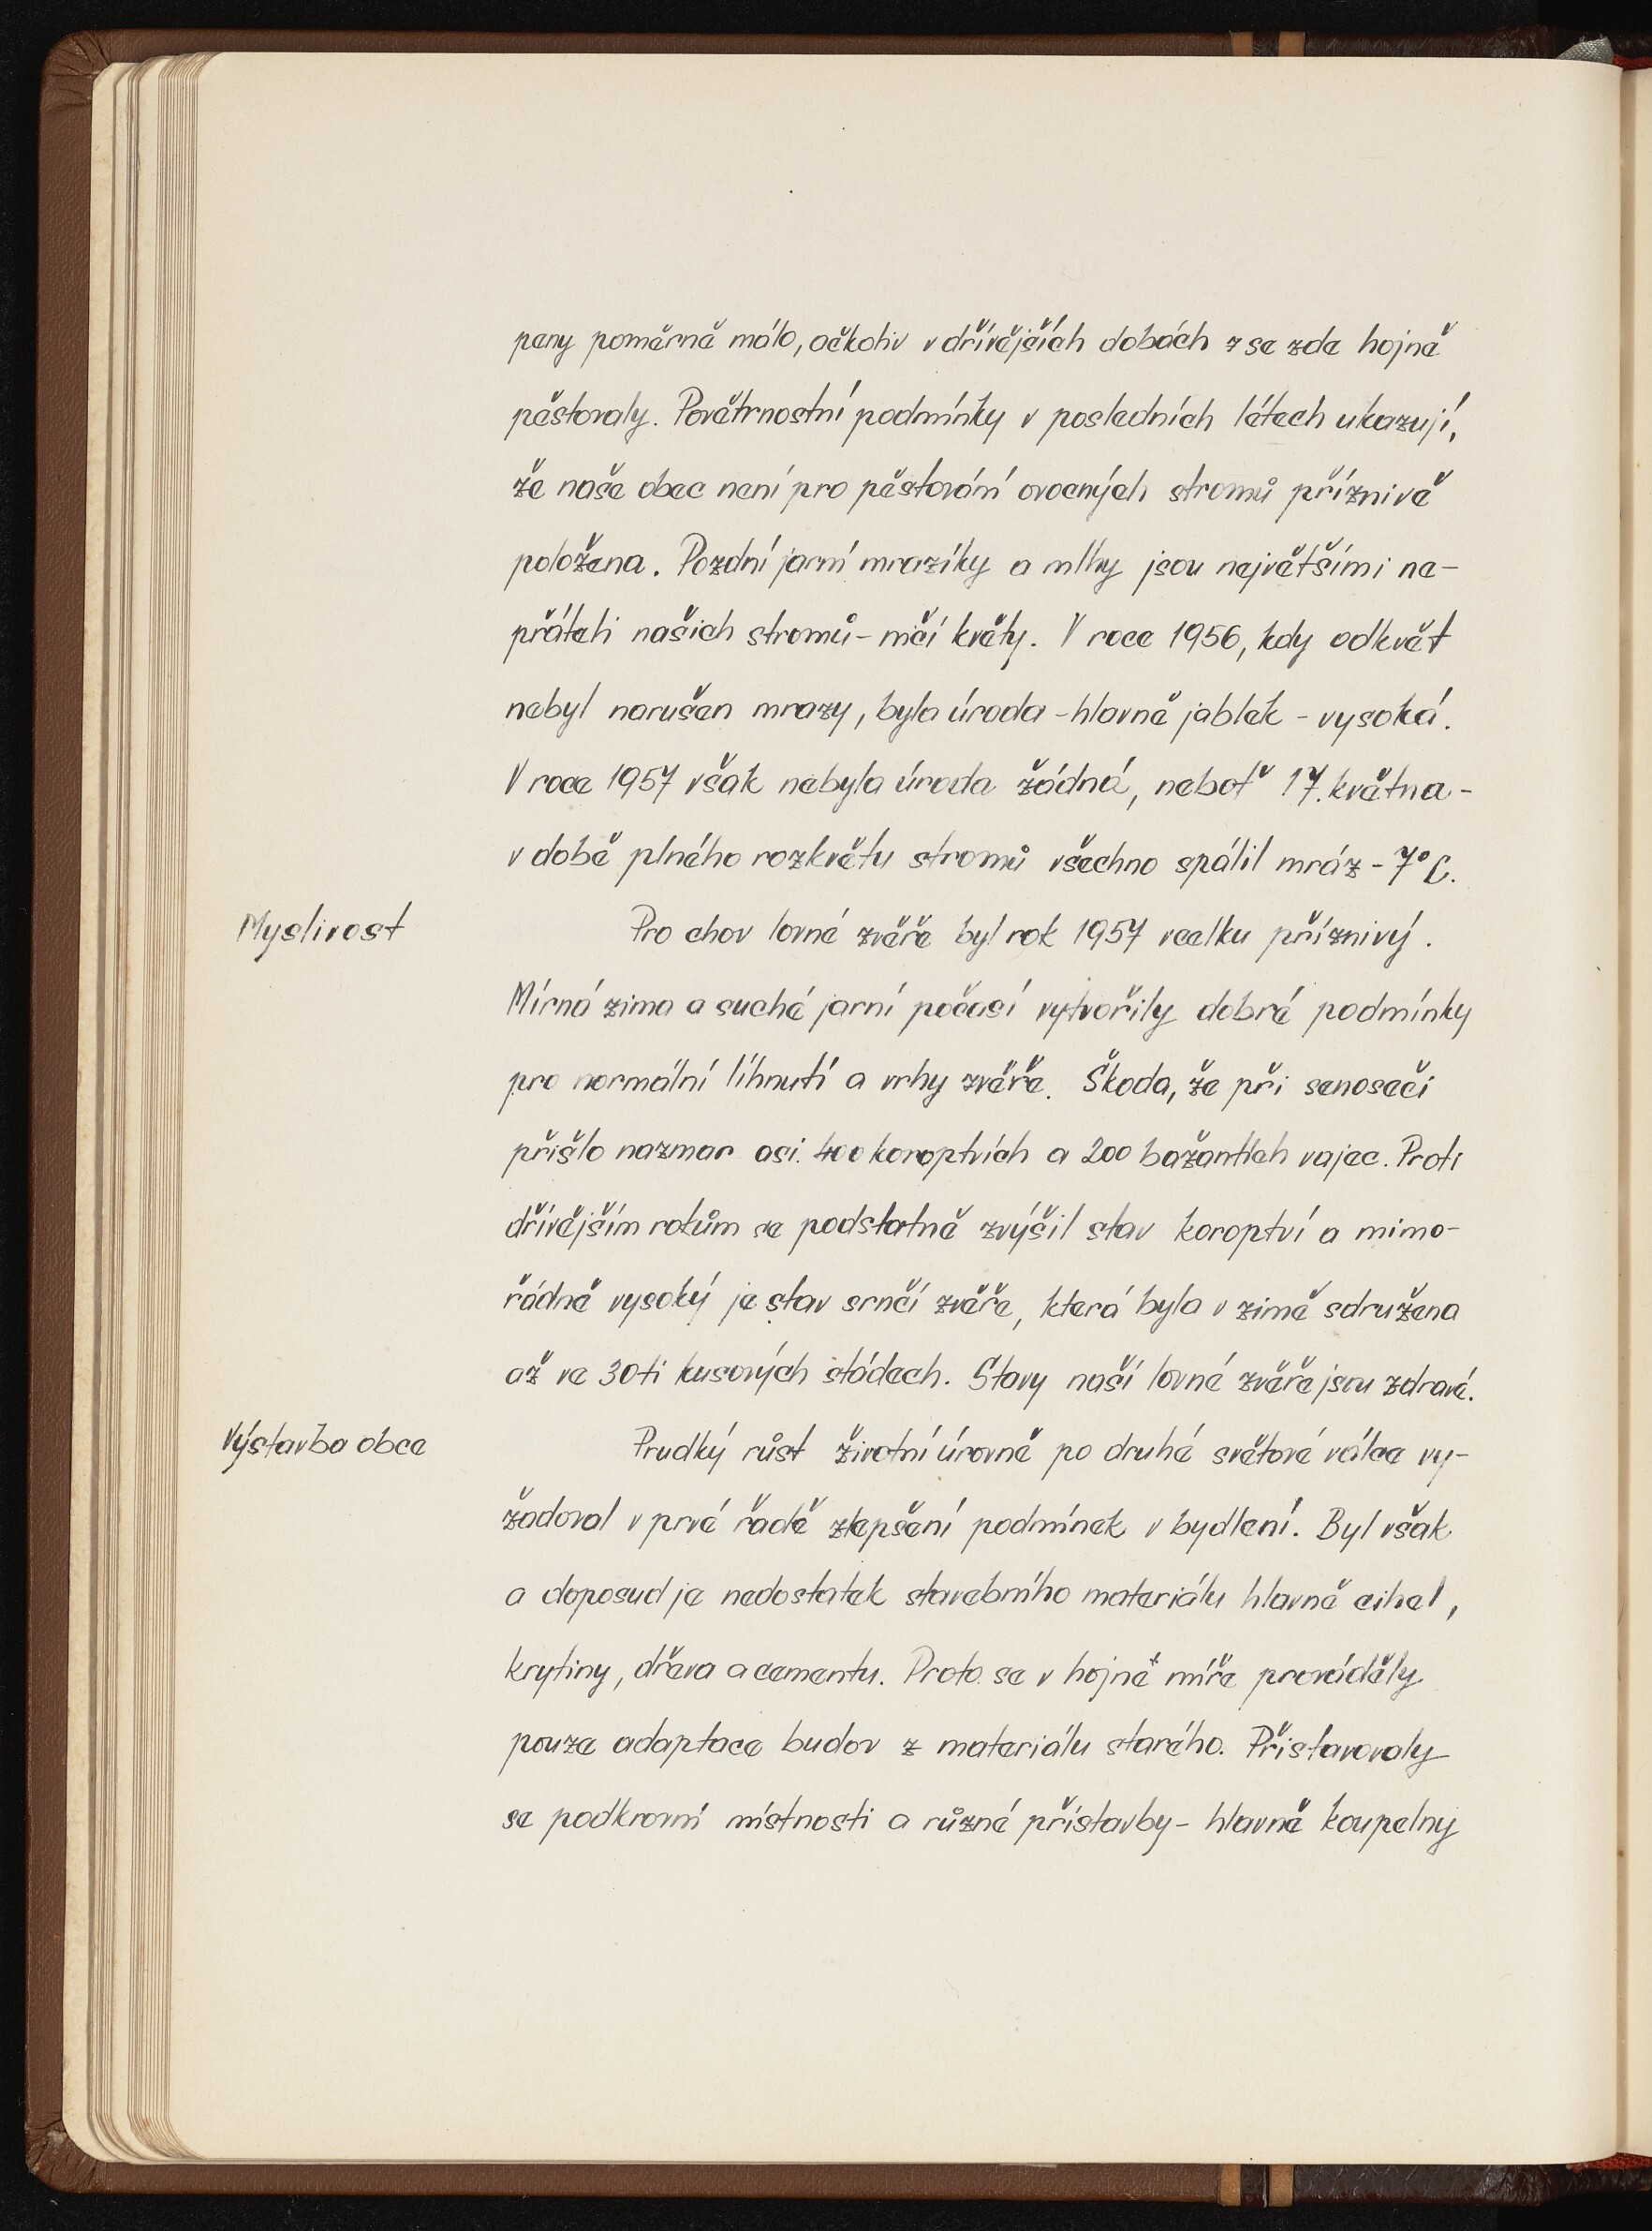 peny poměrně málo, ačkoliv v dřívějších dobách se zde hojně
pěstovaly. Povětrnostní podmínky v posledních létech ukazují,
že naše obec není pro pěstování ovocných stromů příznivě
položena. Pozdní jarní mrazíky a mlhy jsou největšími ne-
přáteli našich stromů - ničí květy. V roce 1956, kdy odkvět
nebyl narušen mrazy, byla úroda - hlavně jablek - vysoká.
V roce 1957 však nebyla úroda žádná, neboť 17. května -
v době plného rozkvětu stromů všechno spálil mráz - 7°C.
Myslivost
Pro chov lovné zvěře byl rok 1957 vcelku příznivý.
Mírná zima a suché jarní počasí vytvořily dobré podmínky
pro normální líhnutí a vrhy zvěře. Škoda, že při senoseči
přišlo nazmar asi 400 koroptvích a 200 bažantích vajec. Proti
dřívějším rokům se podstatně zvýšil stav koroptví a mimo-
řádně vysoký je stav srnčí zvěře, která byla v zimě sdružena
až ve 30ti kusových stádech. Stavy naší lovné zvěře jsou zdravé.
Výstavba obce
Prudký růst životní úrovně po druhé světové válce vy-
žadoval v prvé řadě zlepšení podmínek v bydlení. Byl však
a doposud je nedostatek stavebního materiálu hlavně cihel,
krytiny, dřeva a cementu. Proto se v hojné míře prováděly
pouze adaptace budov z materiálu starého. Přistavovaly
se podkrovní místnosti a různé přístavby - hlavně koupelny